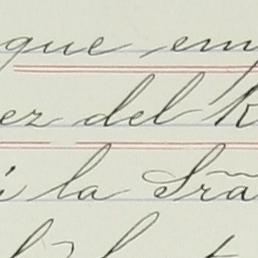 que em
ez del R
i la Srã